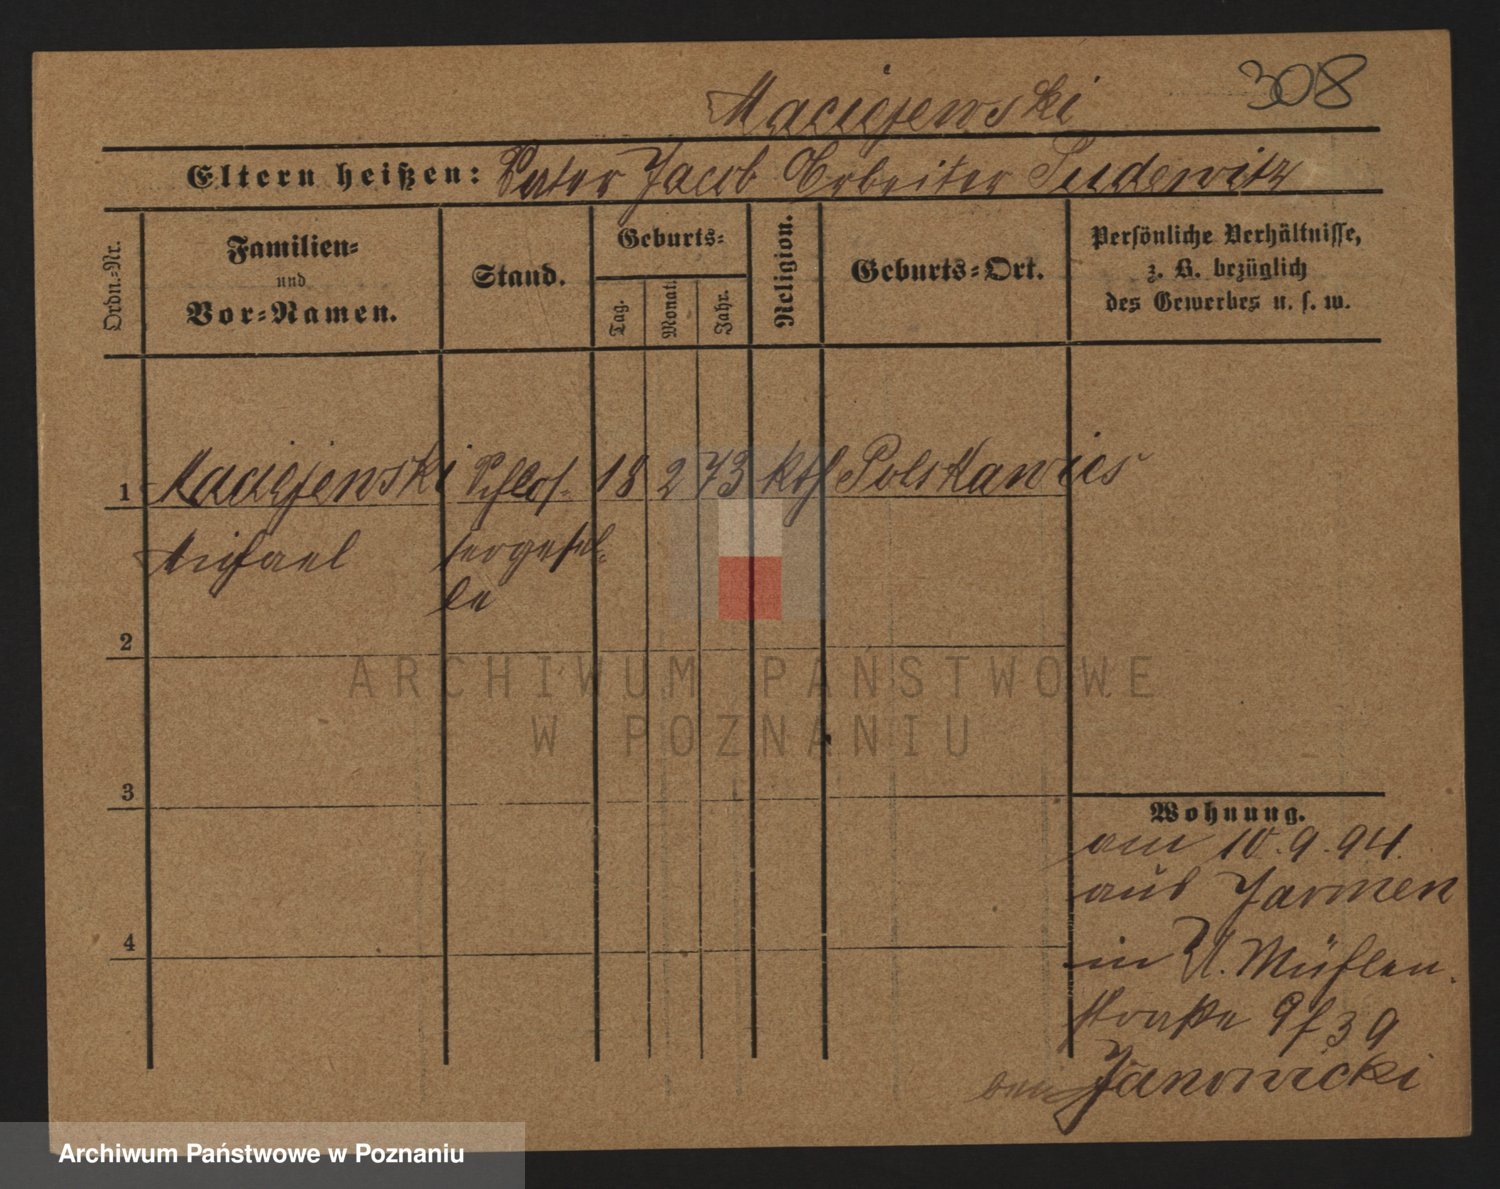 308
Maciejewski
Eltern heißen: Vater Jacob Arbeiter Pudewitz
Ordn.-Nr.
Familien-
und
Vor-Namen.
Stand.
Geburts-
Tag.
Monat.
Jahr.
Religion.
Geburts-Ort.
Persönliche Verhältnisse,
z. B. bezüglich
des Gewerbes u. s. w.
1 Maciejewski Schlos- 18 2 73 kth Polskawies
Michael sergesel-
le
2
3
4
Wohnung.
am 10.9.94.
aus Jarmen
in U. Mühlen
straße 9 39
bei Janowicki
ARCHIWUM PAŃSTWOWE
W POZNANIU
Archiwum Państwowe w Poznaniu